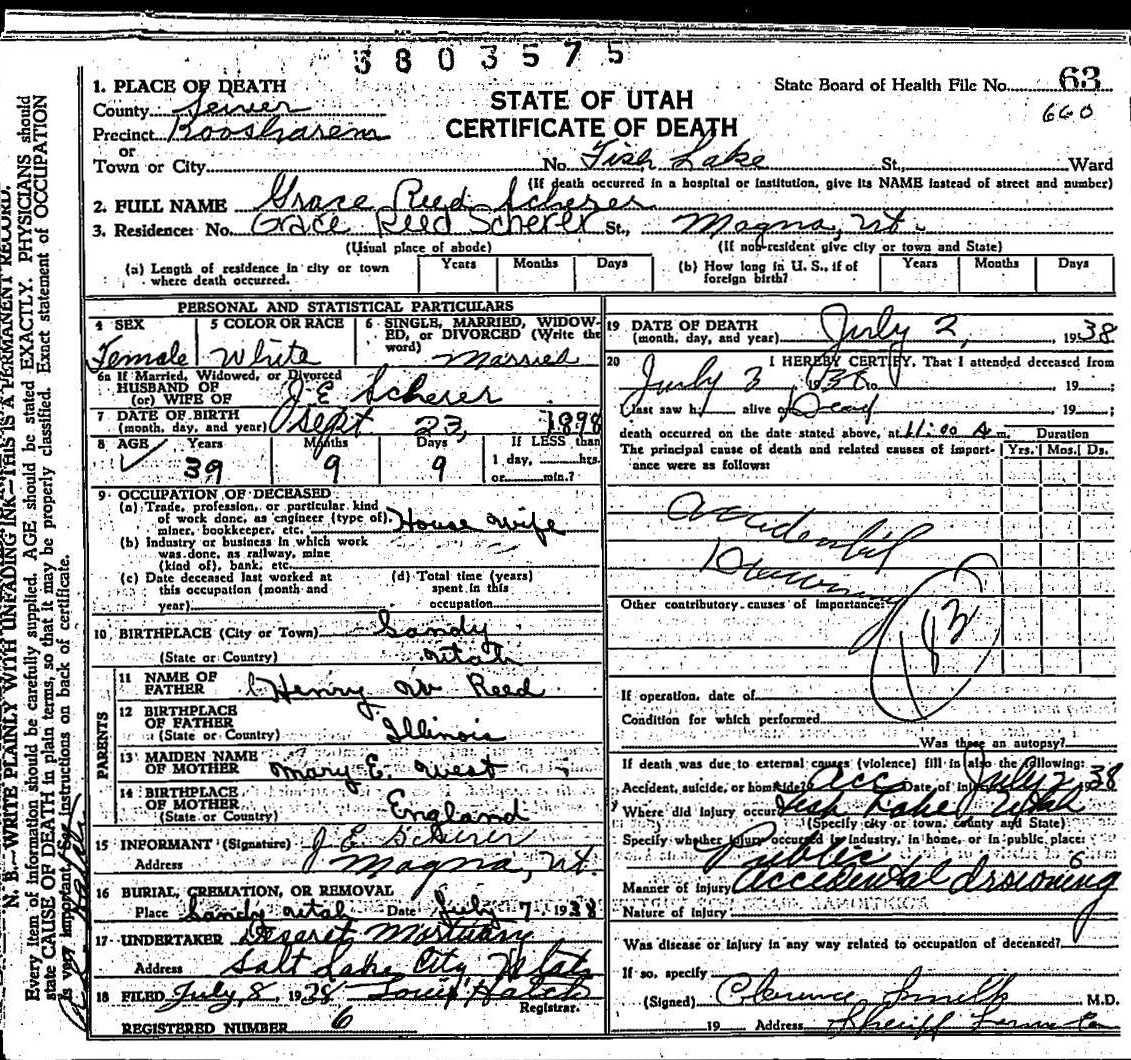 3803575
1. PLACE OF DEATH
County Sevier
Precinct Koosharem
or
Town or City
STATE OF UTAH
CERTIFICATE OF DEATH
State Board of Health File No. 63
660
No. Fish Lake St., Ward
(If death occurred in a hospital or institution, give its NAME instead of street and number)
2. FULL NAME Grace Reed Scherer
3. Residence: No. Grace Reed Scherer St., Magna, Ut.
(Usual place of abode) (If non-resident give city or town and State)
(a) Length of residence in city or town where death occurred. Years Months Days
(b) How long in U. S., if of foreign birth? Years Months Days
PERSONAL AND STATISTICAL PARTICULARS
4 SEX Female
5 COLOR OR RACE White
6 SINGLE, MARRIED, WIDOWED, or DIVORCED (Write the word) Married
6a If Married, Widowed, or Divorced
HUSBAND OF
(or) WIFE OF J.E. Scherer
7 DATE OF BIRTH
(month, day, and year) Sept 23, 1898
8 AGE Years Months Days If LESS than
39 9 9 1 day, hrs.
or min.?
9 OCCUPATION OF DECEASED
(a) Trade, profession, or particular kind
of work done, as engineer (type of),
miner, bookkeeper, etc. House wife
(b) Industry or business in which work
was done, as railway, mine
(kind of), bank, etc.
(c) Date deceased last worked at
this occupation (month and
year)
(d) Total time (years)
spent in this
occupation
10 BIRTHPLACE (City or Town) Sandy
(State or Country) Utah
PARENTS
11 NAME OF
FATHER Henry W Reed
12 BIRTHPLACE
OF FATHER
(State or Country) Illinois
13 MAIDEN NAME
OF MOTHER Mary E. West
14 BIRTHPLACE
OF MOTHER
(State or Country) England
15 INFORMANT (Signature) J E Scherer
Address Magna, Ut.
16 BURIAL, CREMATION, OR REMOVAL
Place Sandy Utah Date July 7, 1938
17 UNDERTAKER Deseret Mortuary
Address Salt Lake City Utah
18 FILED July 8, 1938 Louis Hatch
Registrar.
REGISTERED NUMBER 6
19 DATE OF DEATH
(month, day, and year) July 2, 1938
20 I HEREBY CERTIFY, That I attended deceased from
July 2 1938 to , 19 ;
I last saw h alive on Dead , 19 ;
death occurred on the date stated above, at 11:00 A m. Duration
The principal cause of death and related causes of importance were as follows: Yrs. Mos. Ds.
Accidental
Drowning
Other contributory causes of importance:
183
If operation, date of
Condition for which performed
Was there an autopsy?
If death was due to external causes (violence) fill in also the following:
Accident, suicide, or homicide? Acc Date of injury July 2 1938
Where did injury occur Fish Lake Utah
(Specify city or town, county and State)
Specify whether injury occurred in industry, in home, or in public place:
Public
Manner of injury Accidental drowning
Nature of injury
Was disease or injury in any way related to occupation of deceased?
If so, specify
(Signed) Clarence Smith M.D.
19 Address Sheriff
N. B.—WRITE PLAINLY WITH UNFADING INK—THIS IS A PERMANENT RECORD.
Every item of information should be carefully supplied. AGE should be stated EXACTLY. PHYSICIANS should
state CAUSE OF DEATH in plain terms, so that it may be properly classified. Exact statement of OCCUPATION
is very important. See instructions on back of certificate.